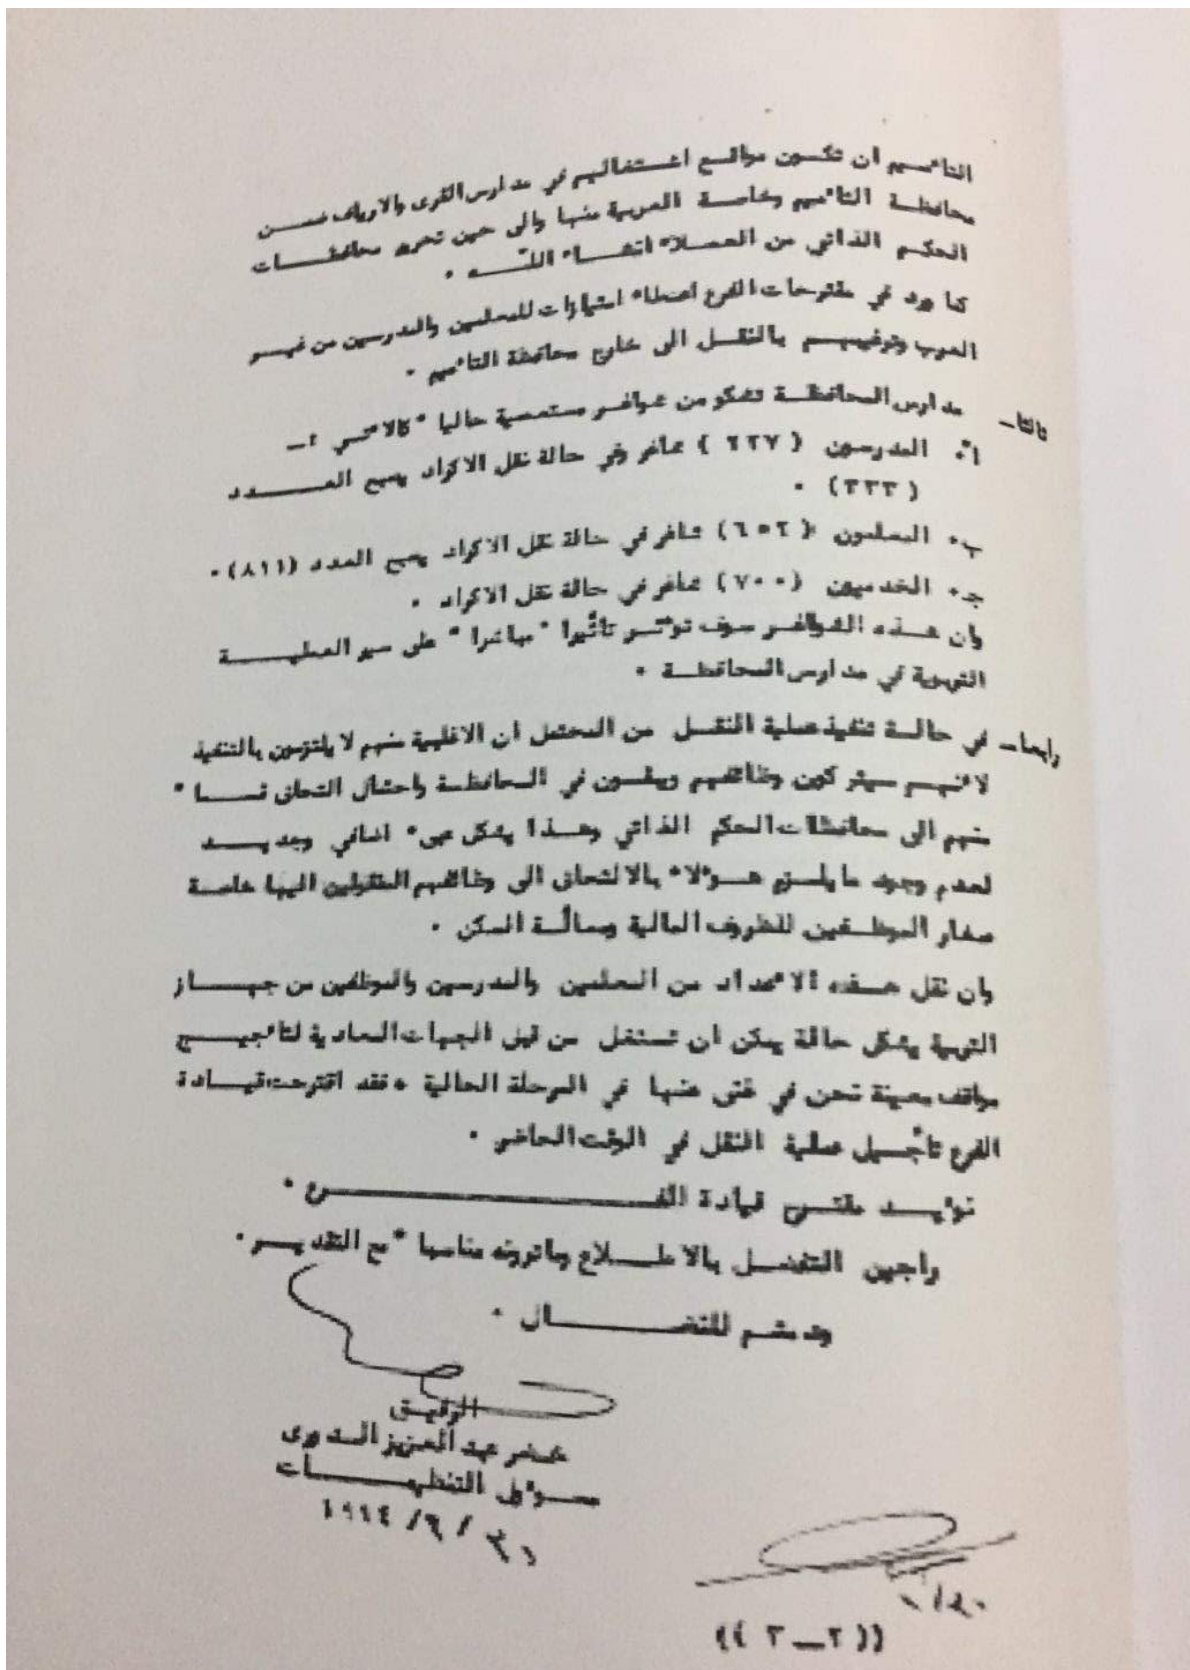 التاميم ان تكون مواقع اشتغالهم في مدارس القرى والارياف ضمن
محافظة التاميم وخاصة العربية منها والى حين تحرير محافظات
الحكم الذاتي من العملاء انشاء اللـه .
كما ورد في مقترحات الفرع اعطاء امتيازات للمعلمين والمدرسين من غير
العرب وترغيبهم بالنقل الى خارج محافظة التاميم .
ثالثا ـ مدارس المحافظة تشكو من شواغر مستعصية حاليا " كالاتي : ـ
أ . المدرسون ( ٢٢٧ ) شاغر وفي حالة نقل الاكراد يصبح العدد
( ٣٣٣ ) .
ب . المعلمون ( ٦٥٢ ) شاغر في حالة نقل الاكراد يصبح العدد (٨١١) .
جـ . الخدميون ( ٧٠٠ ) شاغر في حالة نقل الاكراد .
وان هذه الشواغر سوف تؤثر تأثيرا " مباشرا " على سير العملية
التربوية في مدارس المحافظة .
رابعا ـ في حالة تنفيذ عملية النقل من المحتمل أن الاغلبية منهم لا يلتزمون بالتنفيذ
لانهم سيتركون وظائفهم ويبقون في المحافظة واحتمال التحاق قسما "
منهم الى محافظات الحكم الذاتي وهذا يشكل عبء اضافي وجديد
لعدم وجود ما يلزم هؤلاء بالالتحاق الى وظائفهم المنقولين اليها خاصة
صغار الموظفين للظروف المالية ومسألة السكن .
وان نقل هذه الاعداد من المعلمين والمدرسين والموظفين من جهاز
التربية يشكل حالة يمكن ان تستغل من قبل الجهات المعادية لتاجيج
مواقف معينة نحن في غنى عنها في المرحلة الحالية . فقد اقترحت قيادة
الفرع تأجيل عملية النقل في الوقت الحاضر .
نؤيد مقترح قيادة الفرع .
راجين التفضل بالاطلاع وماترونه مناسبا " مع التقدير .
ودمتم للنضال .
الرفيق
خضر عبد العزيز الدوري
مسؤول التنظيمات
/ ٦ / ١٩٩٤
(( ٢ ــ ٣ ))